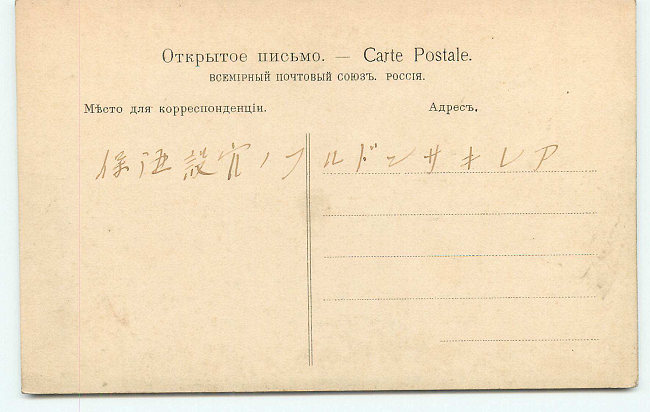 Открытое письмо. — Carte Postale.
ВСЕМІРНЫЙ ПОЧТОВЫЙ СОЮЗЪ. РОССІЯ.
Мѣсто для корреспонденціи.
Адресъ.
アレキサンドルフノ官設酒保